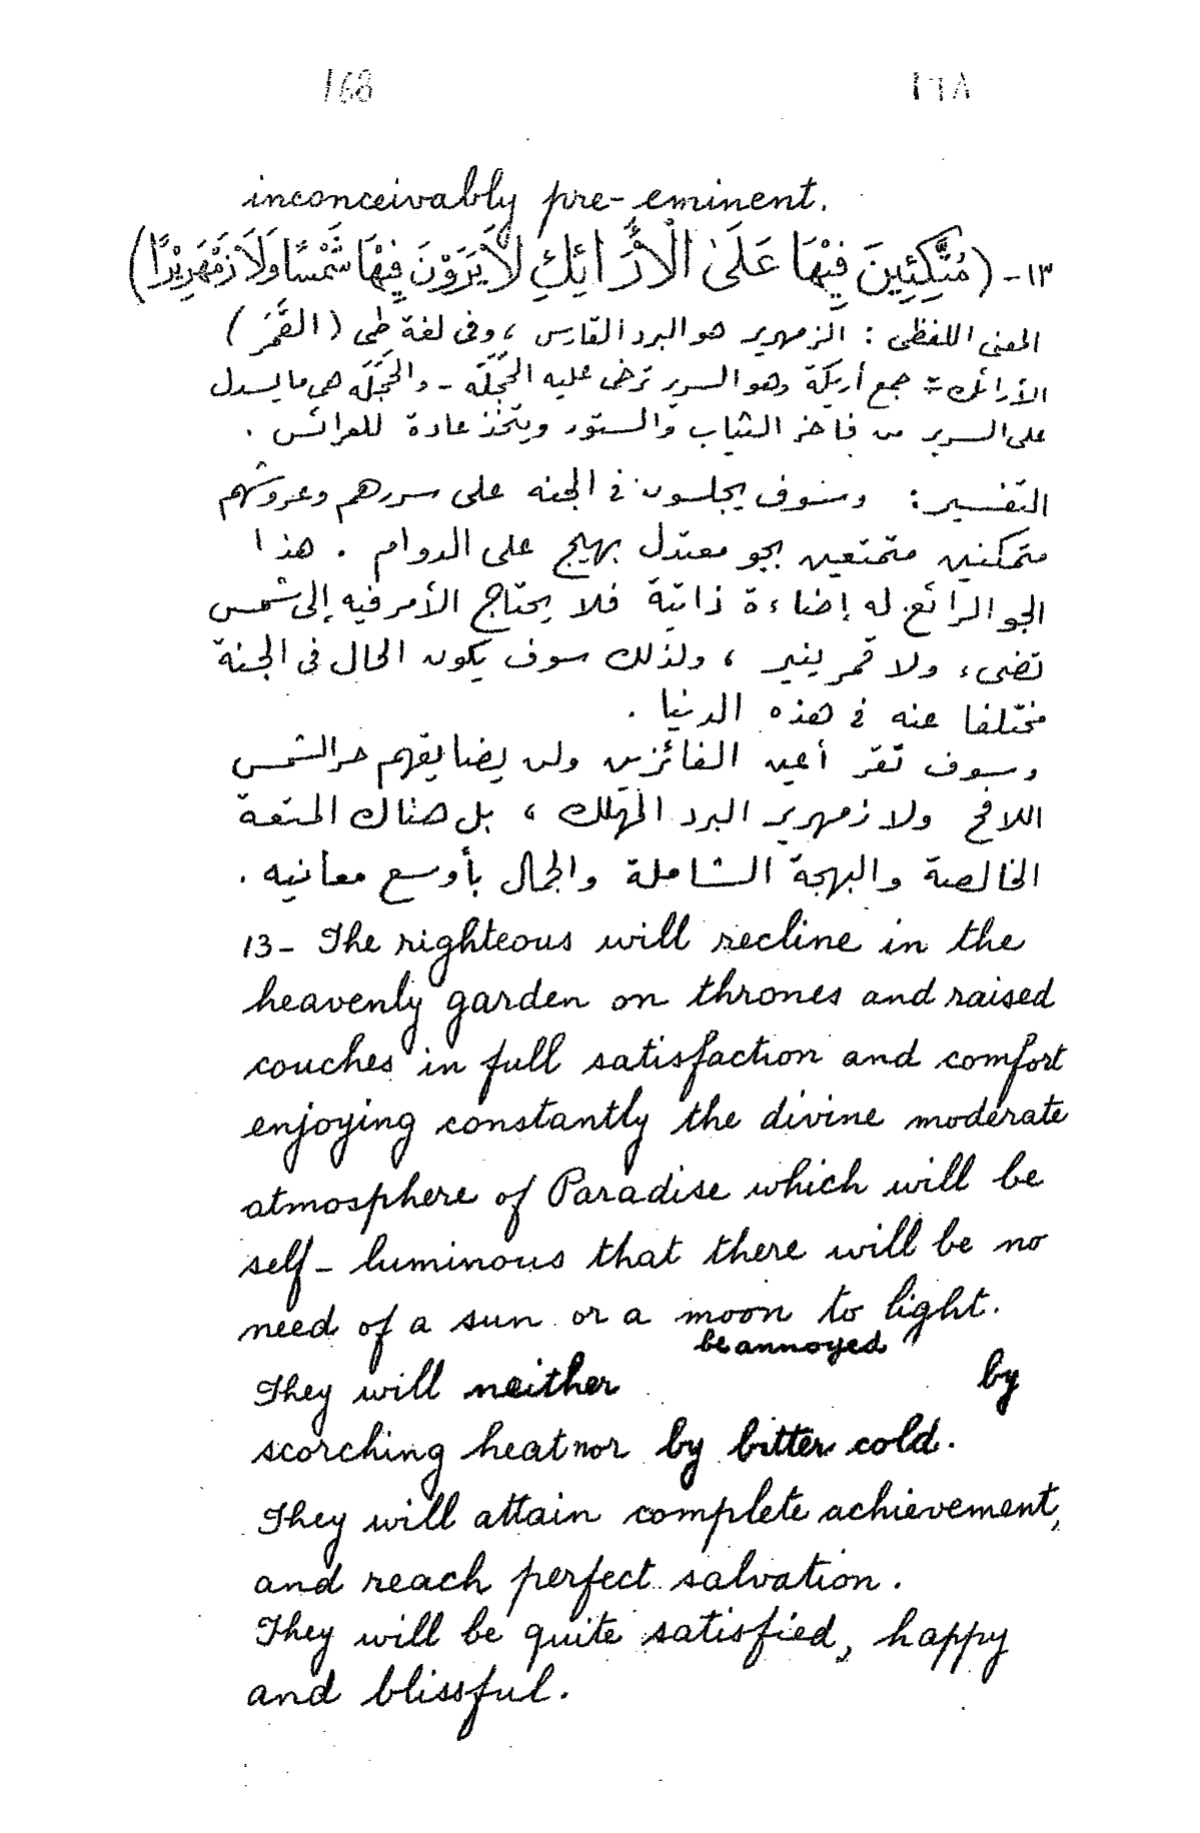 168 ١٦٨
inconceivably pre-eminent.
١٣- (مُتَّكِئِينَ فِيْهَا عَلَىٰ الْأَرَائِكِ لَا يَرَوْنَ فِيْهَا شَمْسًا وَلَا زَمْهَرِيْرًا)
المعنى اللفظى : الزمهرير هو البرد القارس ، وفى لغة طى (القَمَر)
الأرائك = جمع أريكة وهو السرير ترخى عليه الحَجَلَه - والحَجَلَه هى ما يسدل
على السرير من فاخر الثياب والستور ويتخذ عادة للعرائس .
التفسير : وسوف يجلسون فى الجنه على سررهم وعروشهم
متمكنين متمتعين بجو معتدل بهيج على الدوام . هذا
الجو الرائع له إضاءة ذاتية فلا يحتاج الأمر فيه إلى شمس
تضىء ولا قمر ينير ، ولذلك سوف يكون الحال فى الجنة
مختلفا عنه فى هذه الدنيا .
وسوف تقر أعين الفائزين ولن يضايقهم حر الشمس
اللافح ولا زمهرير البرد المهلك ، بل هناك المتعة
الخالصة والبهجة الشاملة والجمال بأوسع معانيه .
13- The righteous will recline in the
heavenly garden on thrones and raised
couches in full satisfaction and comfort
enjoying constantly the divine moderate
atmosphere of Paradise which will be
self-luminous that there will be no
need of a sun or a moon to light.
They will neither be annoyed by
scorching heat nor by bitter cold.
They will attain complete achievement,
and reach perfect salvation.
They will be quite satisfied, happy
and blissful.